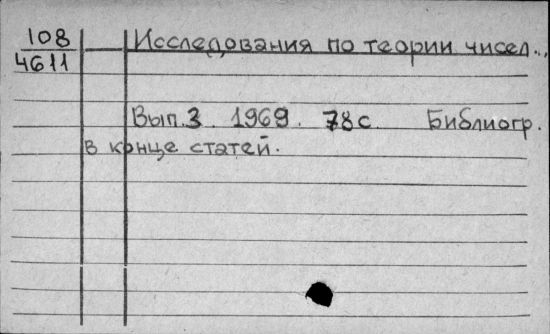 108 Исследования по теории чисел...
4611
Вып.3. 1969. 78с. Библиогр.
в конце статей.